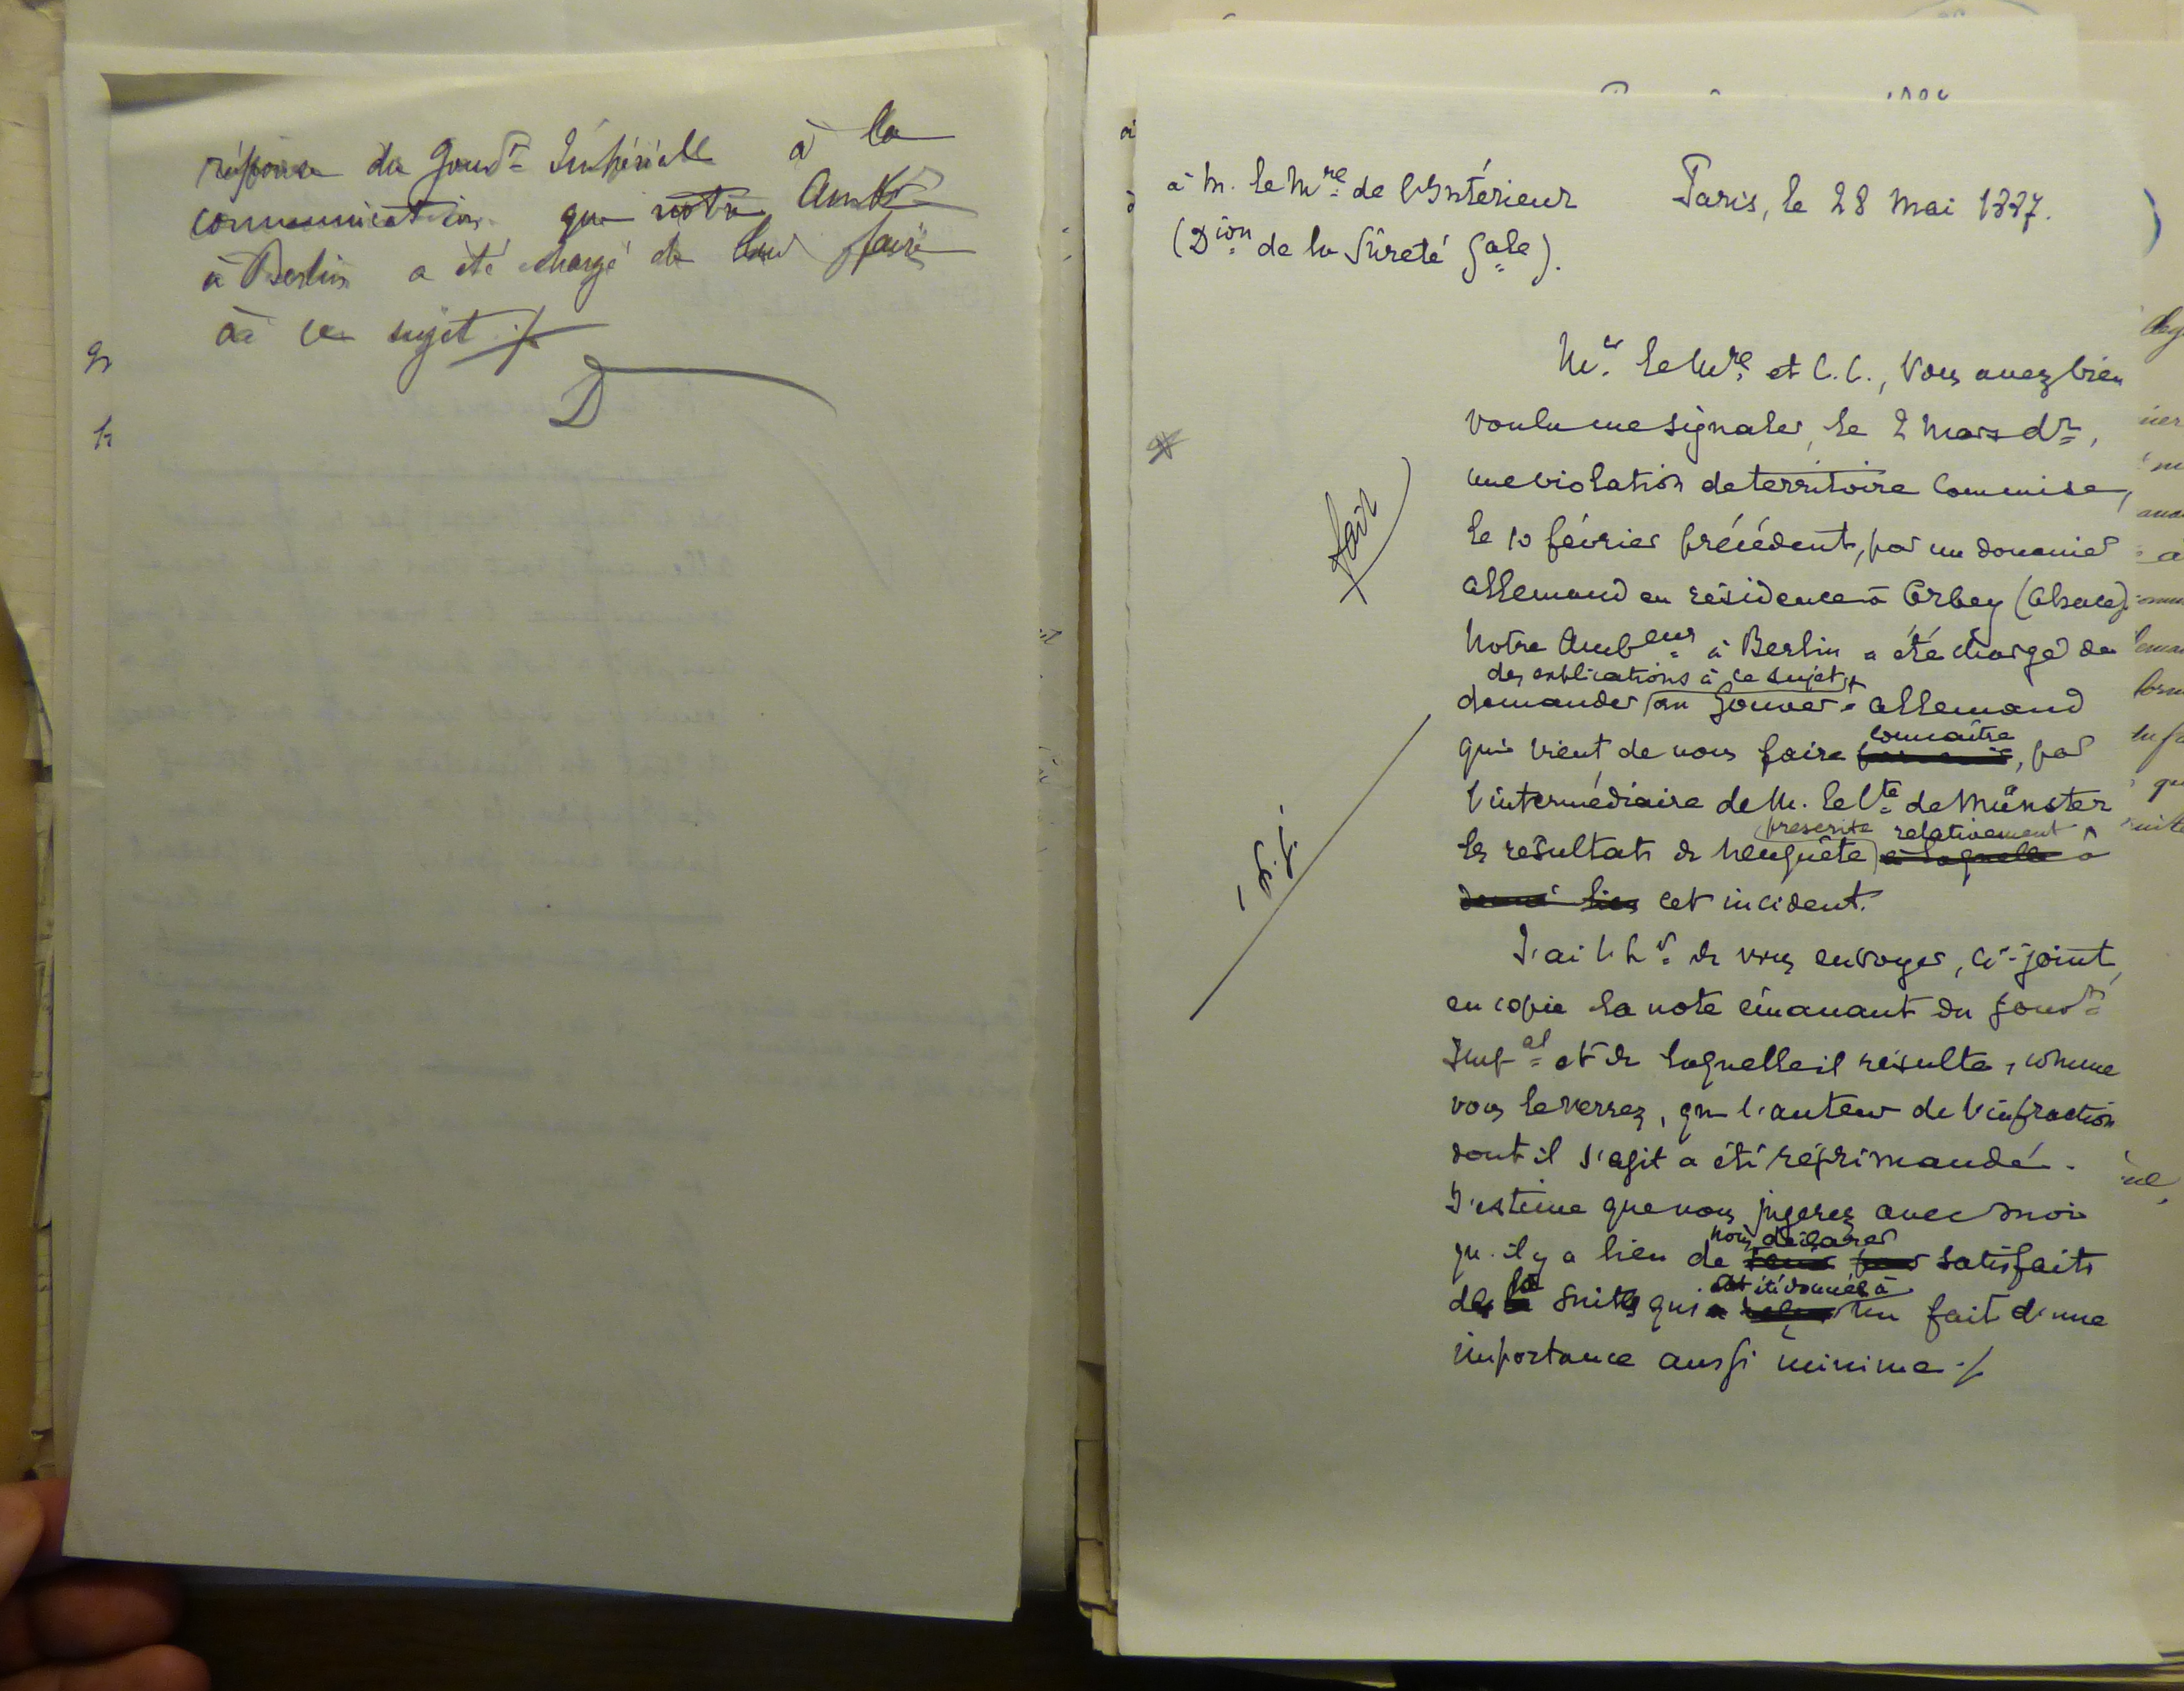 réponse du Gouvt Impérial à la
communication que notre Ambr
à Berlin a été chargé de lui faire
à ce sujet ./.
D
à M. le Mre de l'Intérieur
(Dion de la Sûreté Gale).
Paris, le 28 Mai 1887.
Mr. le Mre et C. C., Vous avez bien
voulu me signaler, le 2 Mars dr,
une violation de territoire commise,
le 10 février précédent, par un douanier
allemand en résidence à Orbey (Alsace).
Notre Ambeur à Berlin a été chargé de
des explications à ce sujet
demander au Gouvert allemand
connaître
qui vient de nous faire , par
l'intermédiaire de M. le Cte de Münster
prescrite relativement
les résultats de l'enquête à laquelle à
donné lieu cet incident.
J'ai l'hr de vous envoyer, ci-joint,
en copie la note émanant du Gouvt
Impal et de laquelle il résulte, comme
vous le verrez, que l'auteur de l'infraction
dont il s'agit a été réprimandé.
J'estime que vous jugerez avec moi
nous déclarer
qu'il y a lieu de satisfaits
ont été données à
des suites qui un fait d'une
importance aussi minime ./.
fair